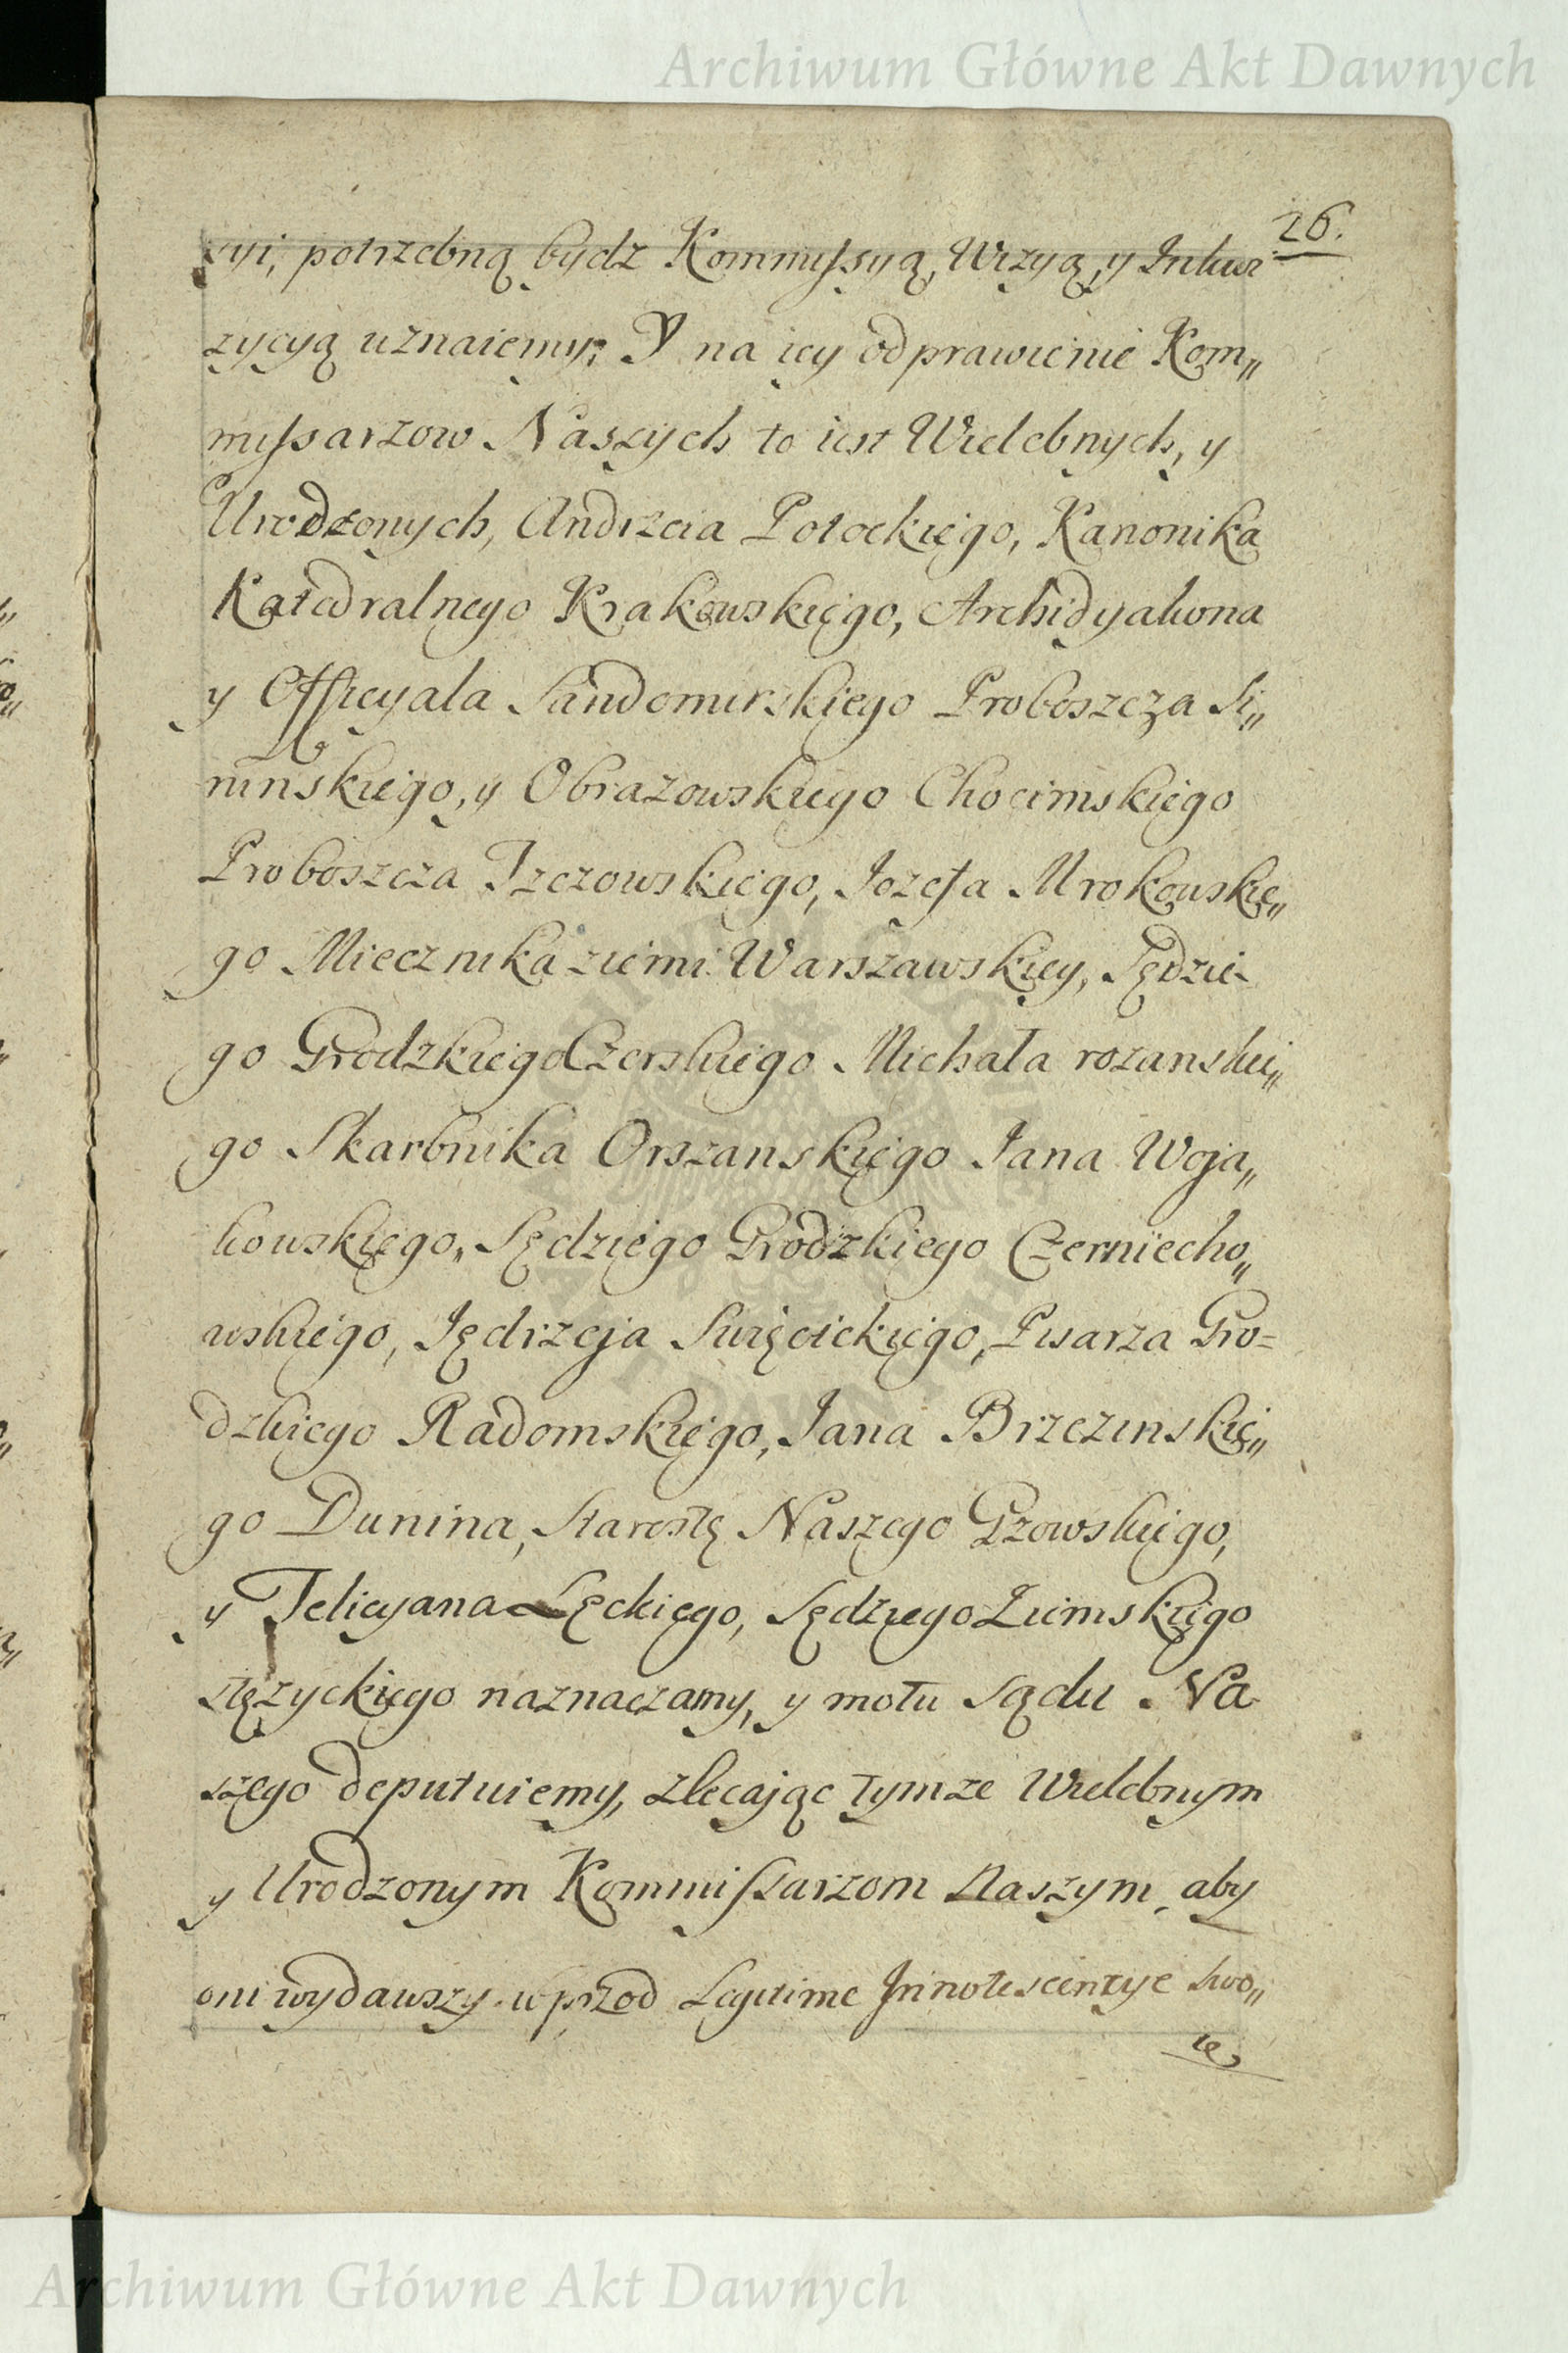 Archiwum Główne Akt Dawnych
26.
syi, potrzebną bydz Kommyssyą, Wizyą, y Inkwi
zycyą uznaiemy; Y na iey odprawienie Kom„
myssarzow Naszych to iest Wielebnych, y
Urodzonych, Andrzeia Potockiego, Kanonika
Katedralnego Krakowskiego, Archidyakona
y Officyala Sandomirskiego Proboszcza Si„
ninskiego, y Obrazowskiego Chocimskiego
Proboszcza Tzczowskiego, Jozefa Mrokowskie„
go Miecznika ziemi Warszawskiey, Sędzie-
go Grodzkiego Czerskiego Michała rozanski„
go Skarbnika Orszanskiego Jana Woja„
kowskiego, Sędziego Grodzkiego Czerniecho„
wskiego, Jędrzeja Swięcickiego, Pisarza Gro=
dzkiego Radomskiego, Jana Brzezinskie„
go Dunina, Starostę Naszego Gzowskiego,
y Felicyana Łęckiego, Sędziego Ziemskiego
stężyckiego naznaczamy, y motu Sądu Na
szego deputuiemy, zlecając tymze Wielebnym
y Urodzonym Kommissarzom Naszym, aby
oni wydawszy wprzod Legitime Innotescencye Swo„
ie
Archiwum Główne Akt Dawnych